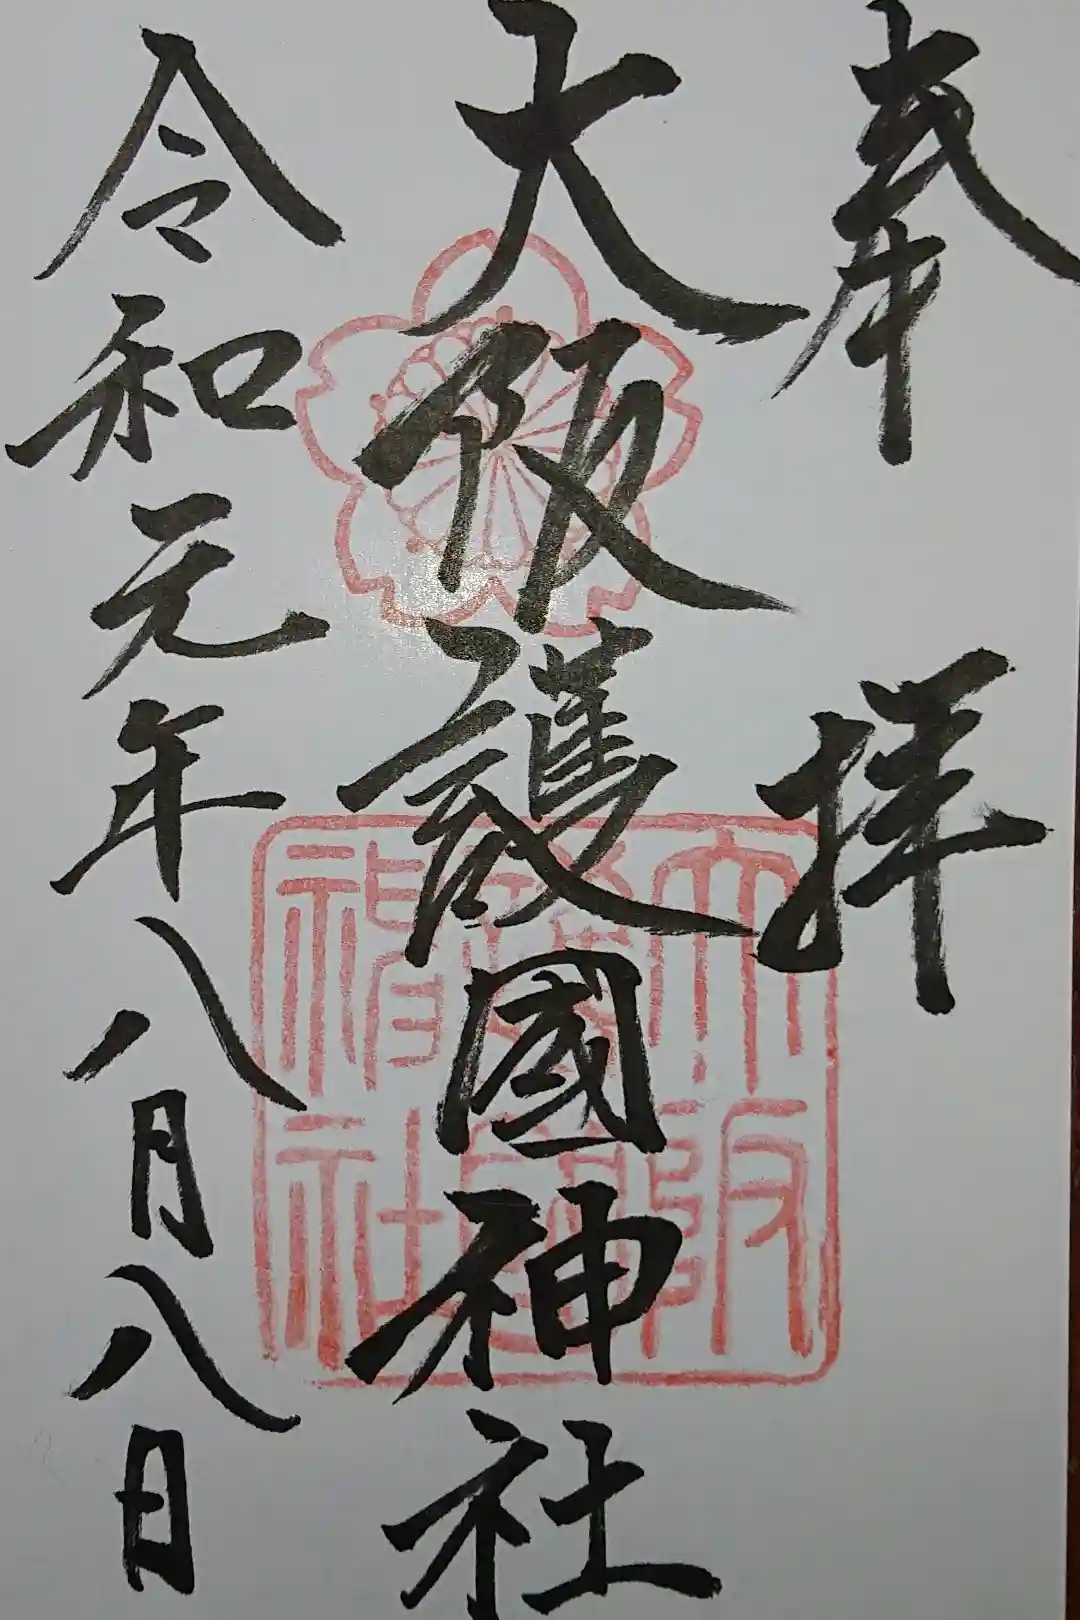 奉拝
大阪護國神社
令和元年八月八日
大阪護國神社